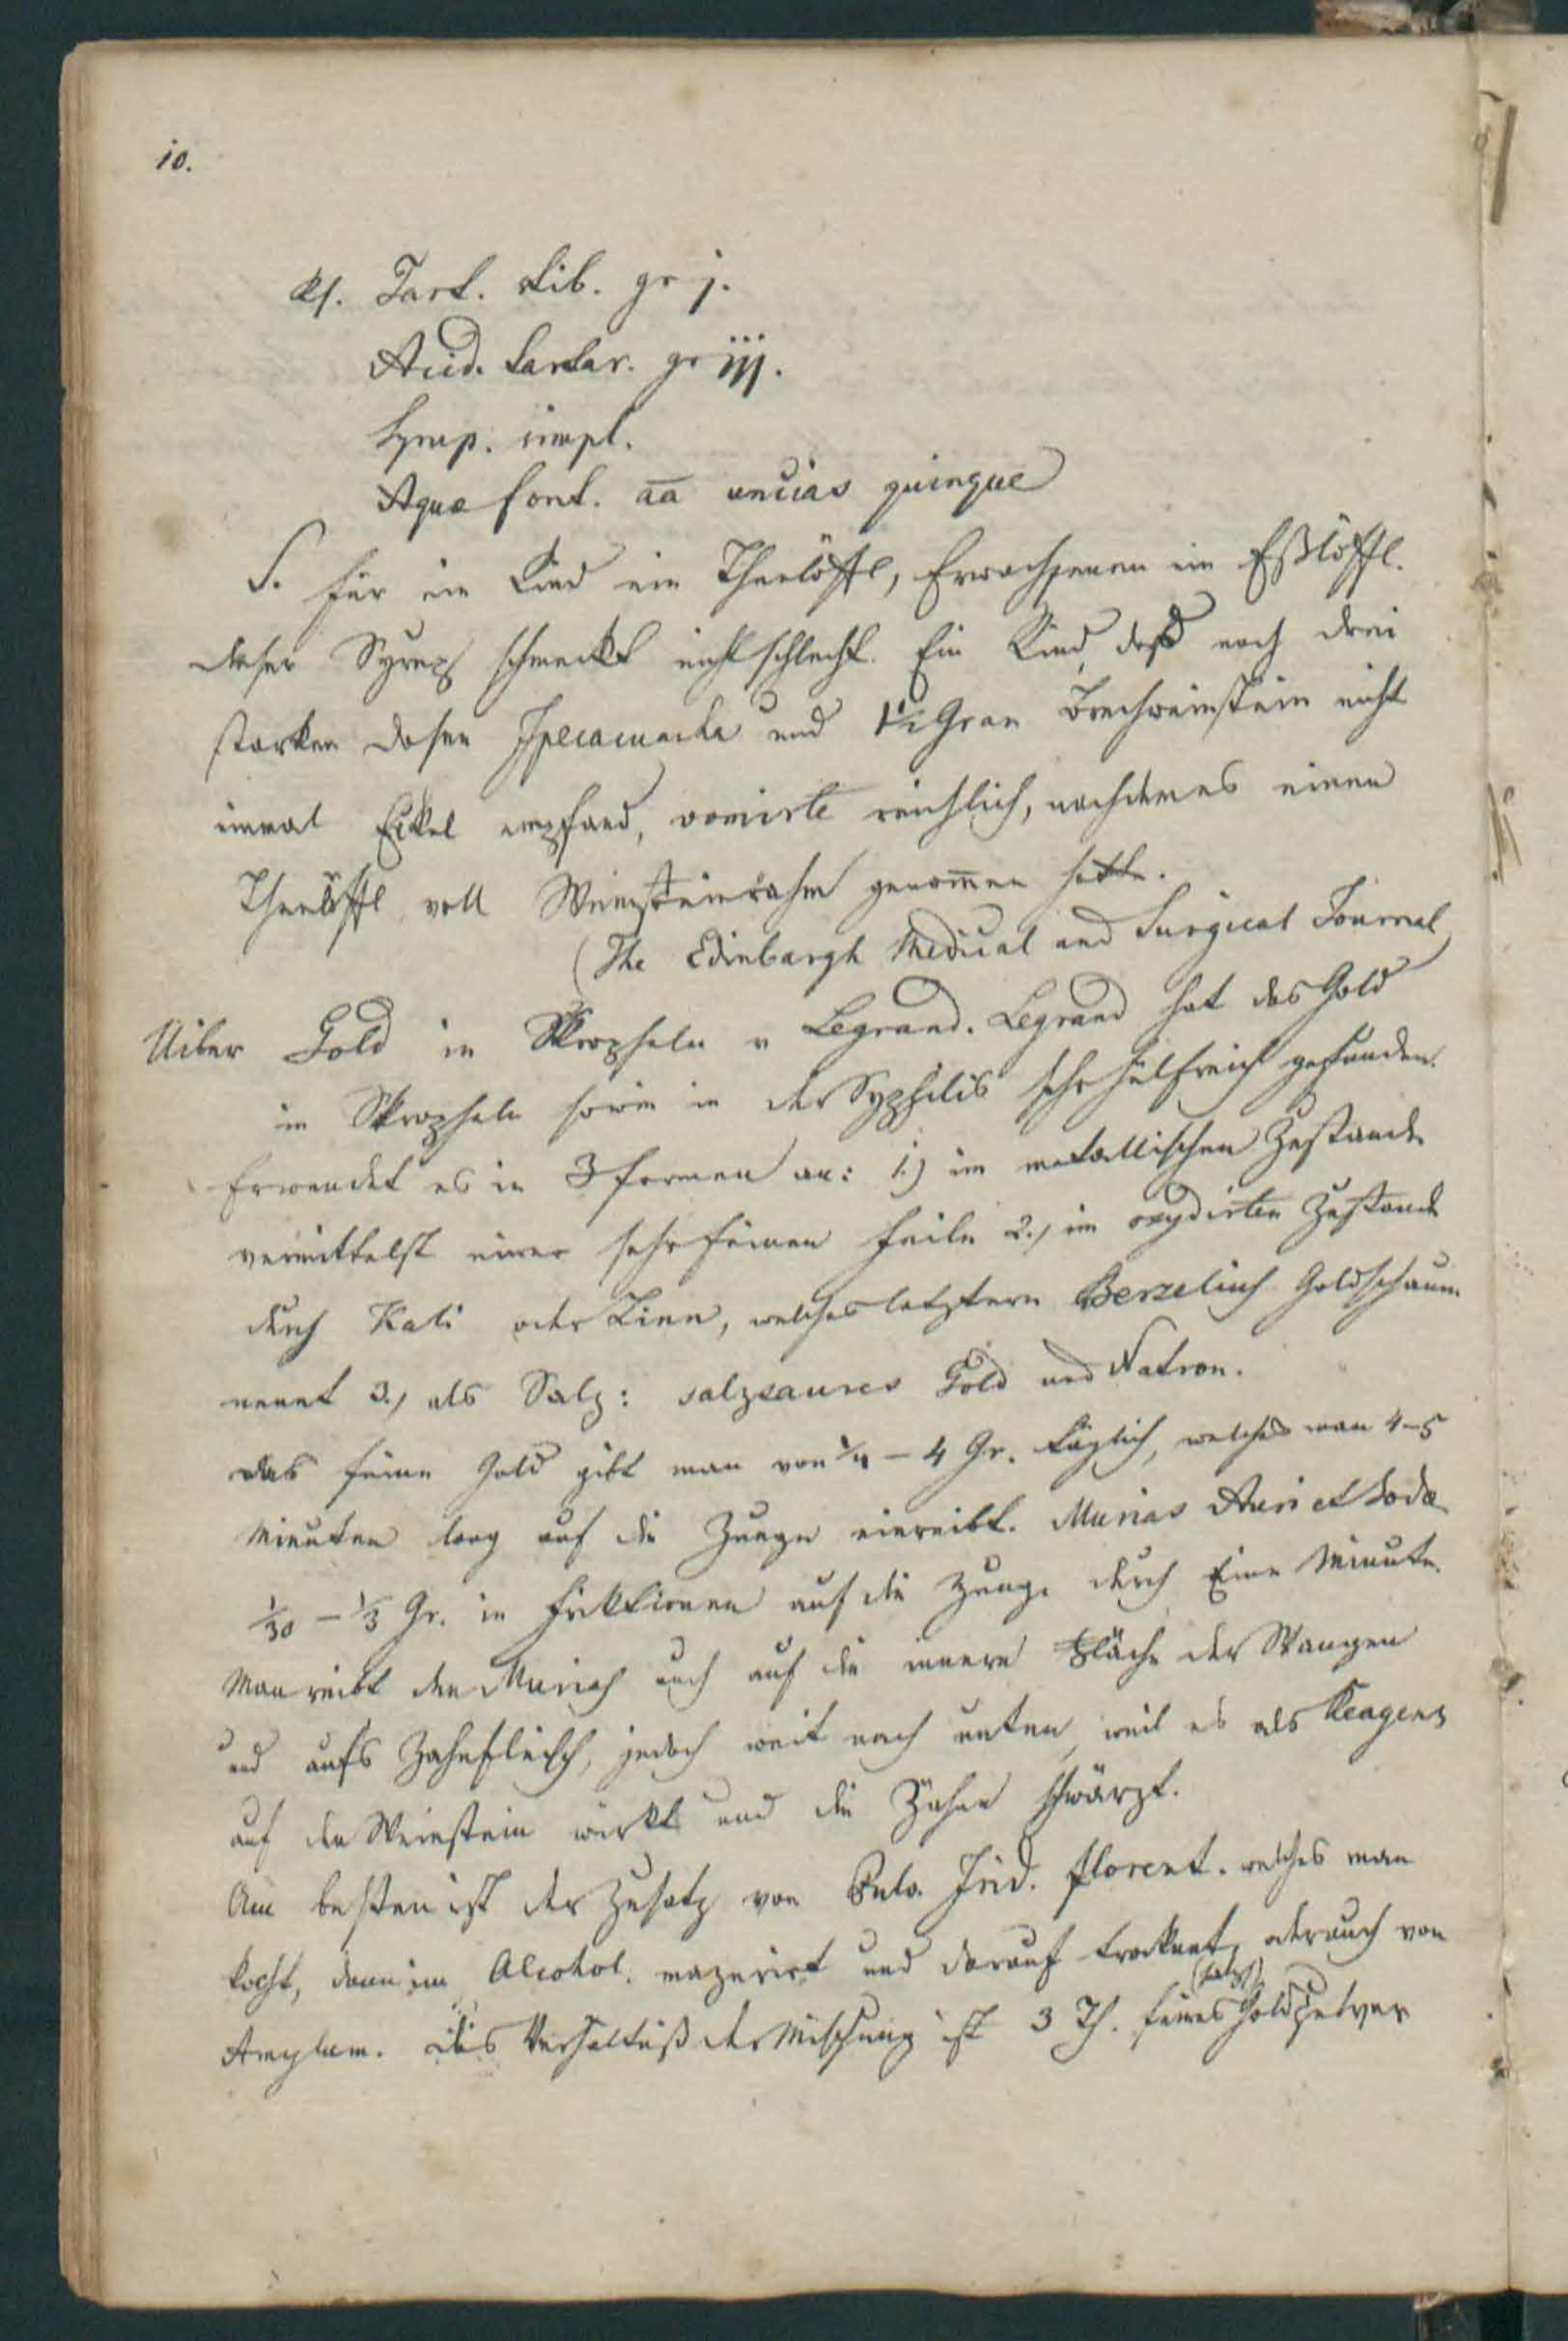 10.
Rf. Tart. stib. gr j.
Acid. tartar. gr iij.
Syrup. simpl.
Aquæ font. āā uncias quinque
S. für ein Kind ein Theelöffl, Erwachsenen ein Eßlöffl.
Dieser Syrup schmeckt nicht schlecht. Ein Kind, daß nach drei
starken Dosen Ipecacuacha und 1½ Gran Brechweinstein nicht
einmal Eckel empfand, vomirte reichlich, nachdem es einen
Theelöffl voll Weinsteinrahm genom̅en hatte.
(The Edinbargh Medical and Surgical Journal)
Uiber Gold in Skropheln v Legrand. Legrand hat das Gold
in Skropheln sowie in der Syphilis sehr hülfreich gefunden.
Er wendet es in 3 Formen an: 1.) im metallischen Zustande
vermittelst einer sehr feinen Feile 2.) im oxydirten Zustande
durch Kali oder Zinn, welches letztern Berzelius Goldschaum
nennt 3.) als Salz: salzsaures Gold und Natron.
Das feine Gold gibt man von ¼ – 4 Gr. täglich, welches man 4–5
Minuten lang auf die Zunge einreibt. Murias Auri et Sodæ
1/30 – 1/3 Gr. in Friktionen auf die Zunge durch Eine Minute.
Man reibt den Murias auch auf die innere Fläche der Wangen
und aufs Zahnfleisch, jedoch weit nach unten, weil es als Reagens
auf den Weinstein wirkt und die Zähne schwärzt.
Am besten ist der Zusatz von Pulv. Irid. florent. welches man
kocht, dann im Alcohol. mazerirt und darauf trocknet, oder auch von
Amylum. Das Verhältniß der Mischung ist 3 Th. feines Goldpulver